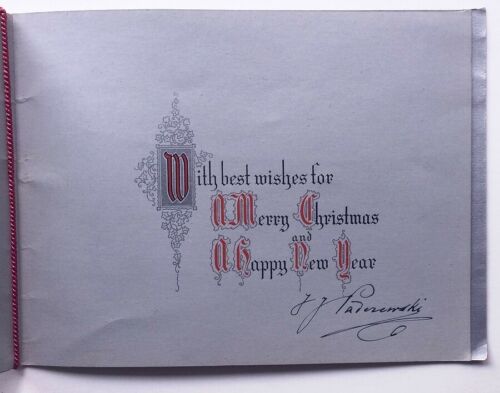 With best wishes for
A Merry Christmas
and
A Happy New Year
I J Paderewski